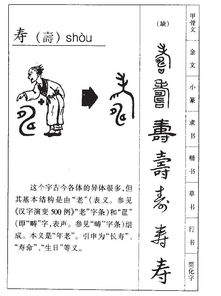 寿（壽）shòu
这个字古今各体的异体很多，但
其基本结构是由“老”（表义。参见
《汉字演变500例》“老”字条）和“𠷎”
（即“畴”字，表声。参见“畴”字条）组
成。本义是“年老”。引申为“长寿”、
“寿命”、“生日”等义。
甲骨文
金文
小篆
隶书
楷书
草书
行书
简化字
（缺）
壽
壽
寿
寿
寿